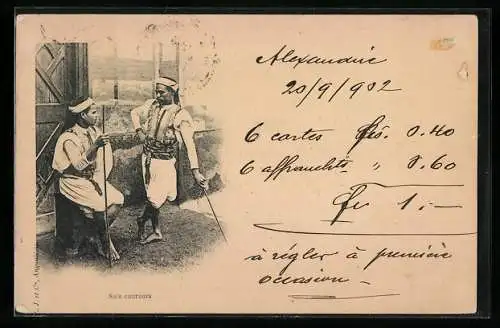 Alexandrie
20/9/902
6 cartes frs. 0.40
6 affrancht. " 0.60
frs 1.—
à régler à première
occasion —
Saïs coureurs